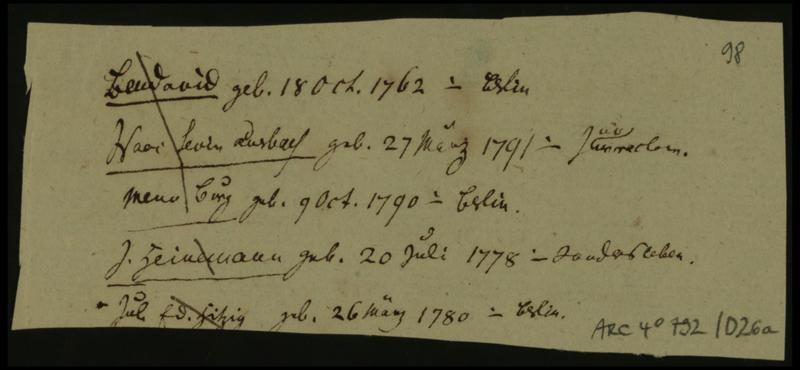 98
Bendavid geb. 18 Oct. 1762 ÷ Berlin
Isaac Levin Auerbach geb. 27 März 1791 ÷
Meno Burg geb. 9 Oct. 1790 ÷ Berlin.
J. Heinemann geb. 20 Juli 1778 ÷ Sandersleben.
Jul. Ed. Hitzig geb. 26 März 1780 ÷ Berlin.
ARC 4° 792 / D26a